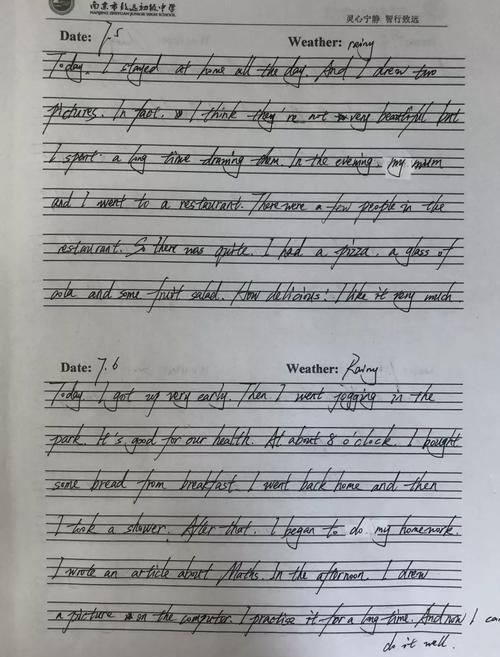 南京市致远初级中学
NANJING ZHIYUAN JUNIOR HIGH SCHOOL
灵心宁静 智行致远
Date: 7.5 Weather: rainy
Today, I stayed at home all the day. And I drew two
pictures. In fact, I think they're not very beautiful but
I spent a long time drawing them. In the evening, my mum
and I went to a restaurant. There were a few people in the
restaurant. So there was quite. I had a pizza, a glass of
cola and some fruit salad. How delicious! I like it very much.
Date: 7.6 Weather: Rainy
Today, I got up very early. Then I went jogging in the
park. It's good for our health. At about 8 o'clock, I bought
some bread from breakfast. I went back home and then
I took a shower. After that, I began to do my homework.
I wrote an article about Maths. In the afternoon, I drew
a picture on the computer. I practise it for a long time. And now I can
do it well.